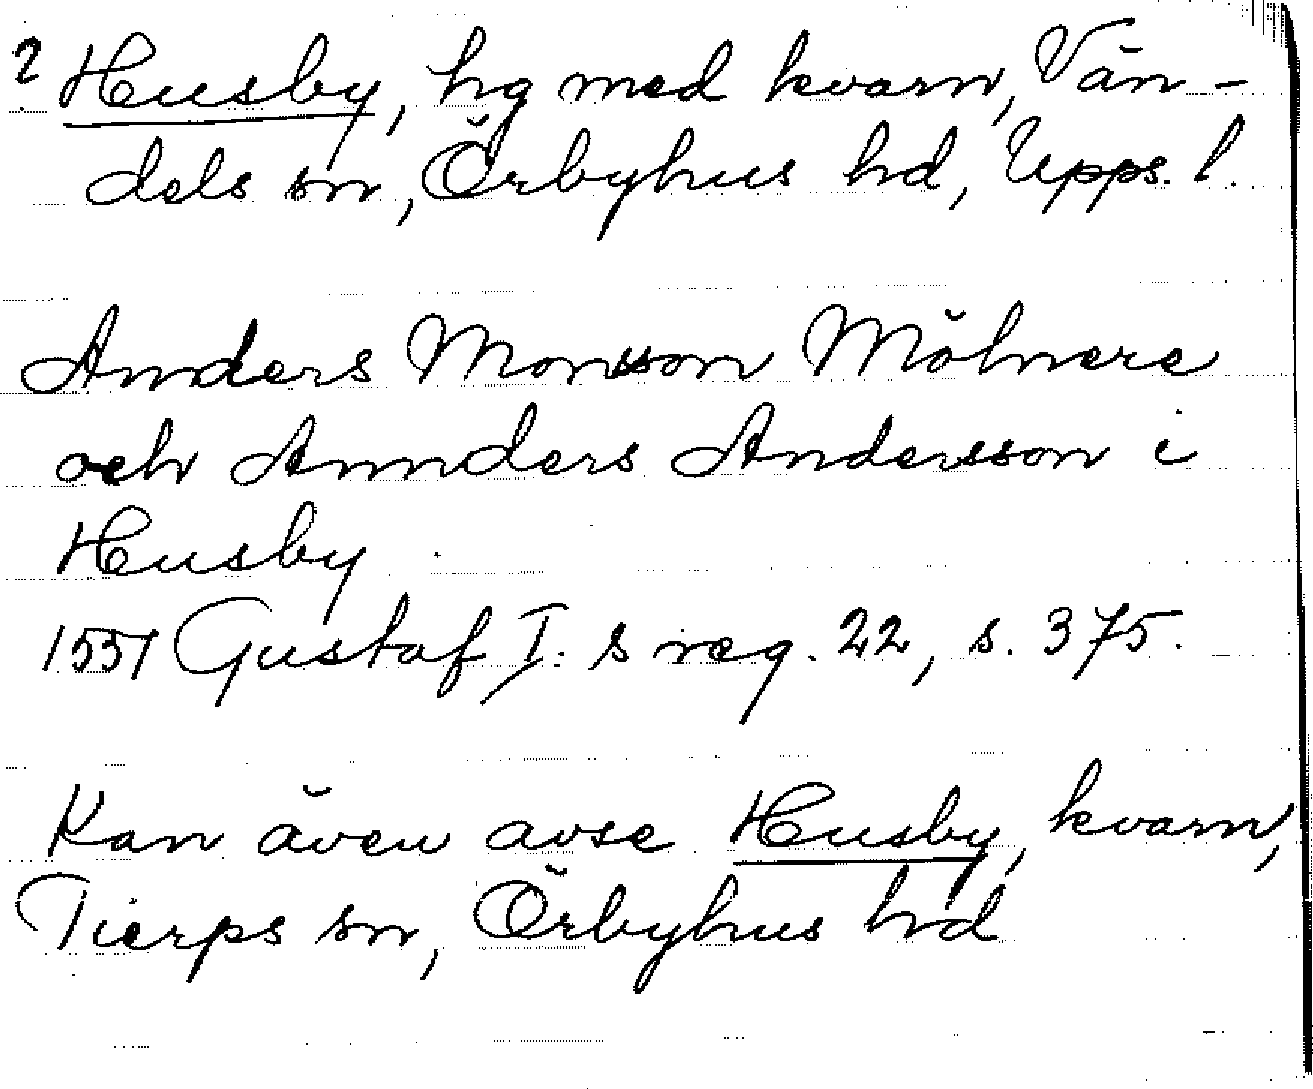 ? Husby, hg med kvarn, Vän-
dels sn, Örbyhus hd, Upps. l.
Anders Monsson Mölnere
och Annders Andersson i
Husby
1551 Gustaf I:s reg. 22, s. 375.
Kan även avse Husby, kvarn,
Tierps sn, Örbyhus hd